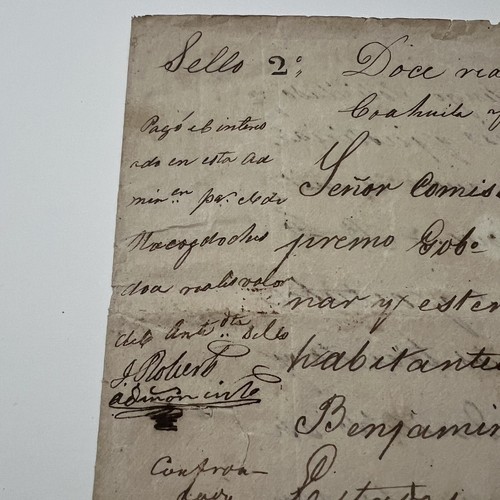 Sello 2º, Doce rea
Coahuila y
Pagó el intere
ado en esta Ad
min.en pa.
Nacogdoches
doa reales valor
del Ant.
Sello
J. Roberts
admon
Señor Comis
premo Gobº
nar y esten
habitantes
Benjamin
Confron